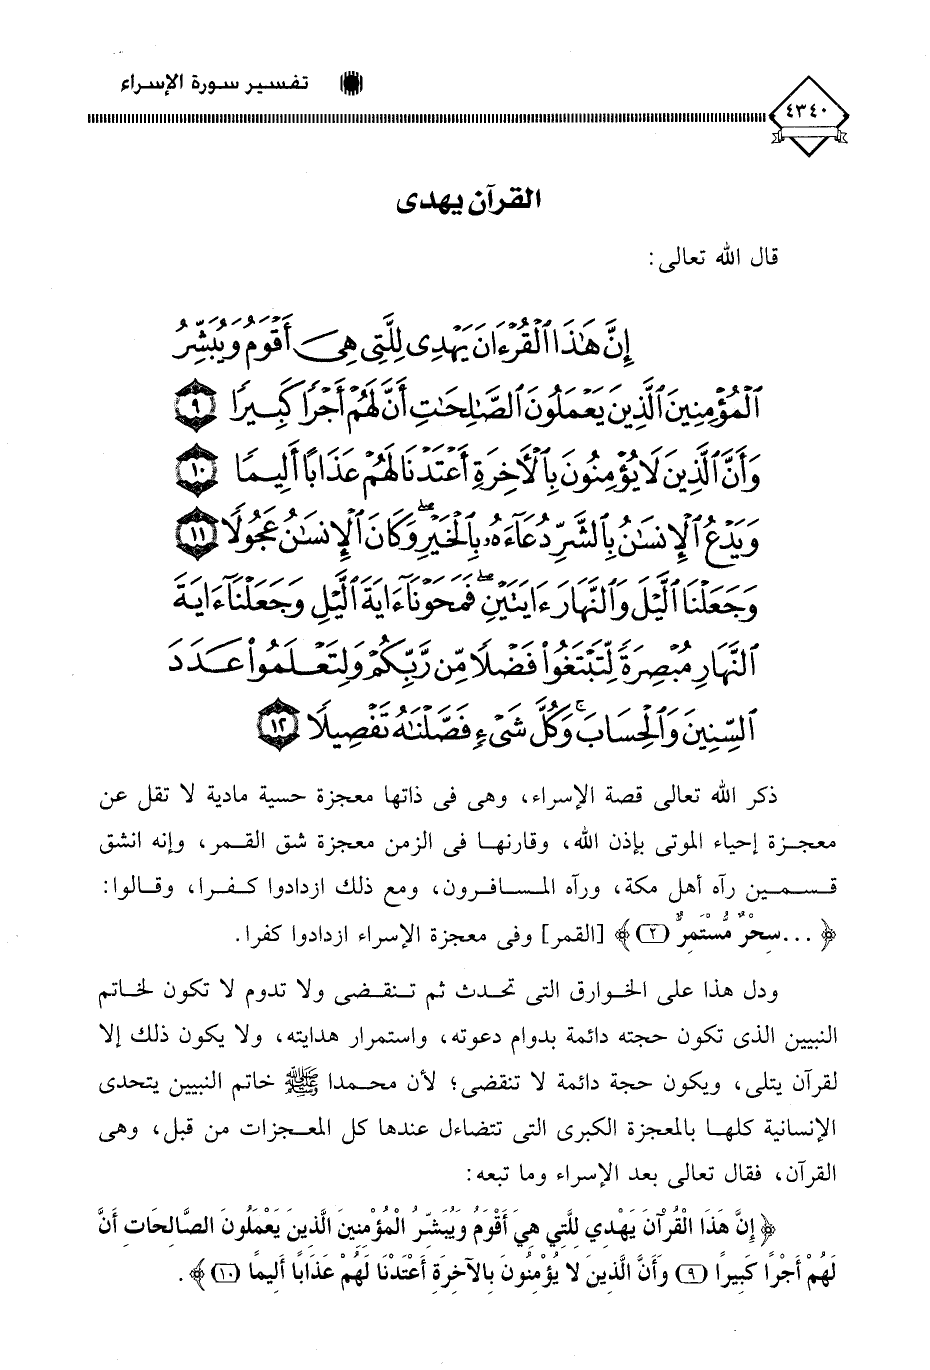 تفسير سورة الإسراء
٤٣٤٠
القرآن يهدى
قال الله تعالى:
إِنَّ هَٰذَا ٱلْقُرْءَانَ يَهْدِى لِلَّتِى هِىَ أَقْوَمُ وَيُبَشِّرُ
ٱلْمُؤْمِنِينَ ٱلَّذِينَ يَعْمَلُونَ ٱلصَّٰلِحَٰتِ أَنَّ لَهُمْ أَجْرًا كَبِيرًا ٩
وَأَنَّ ٱلَّذِينَ لَا يُؤْمِنُونَ بِٱلْأَخِرَةِ أَعْتَدْنَا لَهُمْ عَذَابًا أَلِيمًا ١٠
وَيَدْعُ ٱلْإِنسَٰنُ بِٱلشَّرِّ دُعَآءَهُۥ بِٱلْخَيْرِ ۖ وَكَانَ ٱلْإِنسَٰنُ عَجُولًا ١١
وَجَعَلْنَا ٱلَّيْلَ وَٱلنَّهَارَ ءَايَتَيْنِ ۖ فَمَحَوْنَآ ءَايَةَ ٱلَّيْلِ وَجَعَلْنَآ ءَايَةَ
ٱلنَّهَارِ مُبْصِرَةً لِّتَبْتَغُوا۟ فَضْلًا مِّن رَّبِّكُمْ وَلِتَعْلَمُوا۟ عَدَدَ
ٱلسِّنِينَ وَٱلْحِسَابَ ۚ وَكُلَّ شَىْءٍ فَصَّلْنَٰهُ تَفْصِيلًا ١٢
ذكر الله تعالى قصة الإسراء، وهى فى ذاتها معجزة حسية مادية لا تقل عن
معجزة إحياء الموتى بإذن الله، وقارنها فى الزمن معجزة شق القمر، وإنه انشق
قسمين رآه أهل مكة، ورآه المسافرون، ومع ذلك ازدادوا كفرا، وقالوا:
﴿ ...سِحْرٌ مُّسْتَمِرٌّ (٢)﴾ [القمر] وفى معجزة الإسراء ازدادوا كفرا.
ودل هذا على الخوارق التى تحدث ثم تنقضى ولا تدوم لا تكون لخاتم
النبيين الذى تكون حجته دائمة بدوام دعوته، واستمرار هدايته، ولا يكون ذلك إلا
لقرآن يتلى، ويكون حجة دائمة لا تنقضى؛ لأن محمدا ﷺ خاتم النبيين يتحدى
الإنسانية كلها بالمعجزة الكبرى التى تتضاءل عندها كل المعجزات من قبل، وهى
القرآن، فقال تعالى بعد الإسراء وما تبعه:
﴿ إِنَّ هَذَا الْقُرْآنَ يَهْدِي لِلَّتِي هِيَ أَقْوَمُ وَيُبَشِّرُ الْمُؤْمِنِينَ الَّذِينَ يَعْمَلُونَ الصَّالِحَاتِ أَنَّ
لَهُمْ أَجْرًا كَبِيرًا (٩) وَأَنَّ الَّذِينَ لا يُؤْمِنُونَ بِالآخِرَةِ أَعْتَدْنَا لَهُمْ عَذَابًا أَلِيمًا (١٠)﴾ .